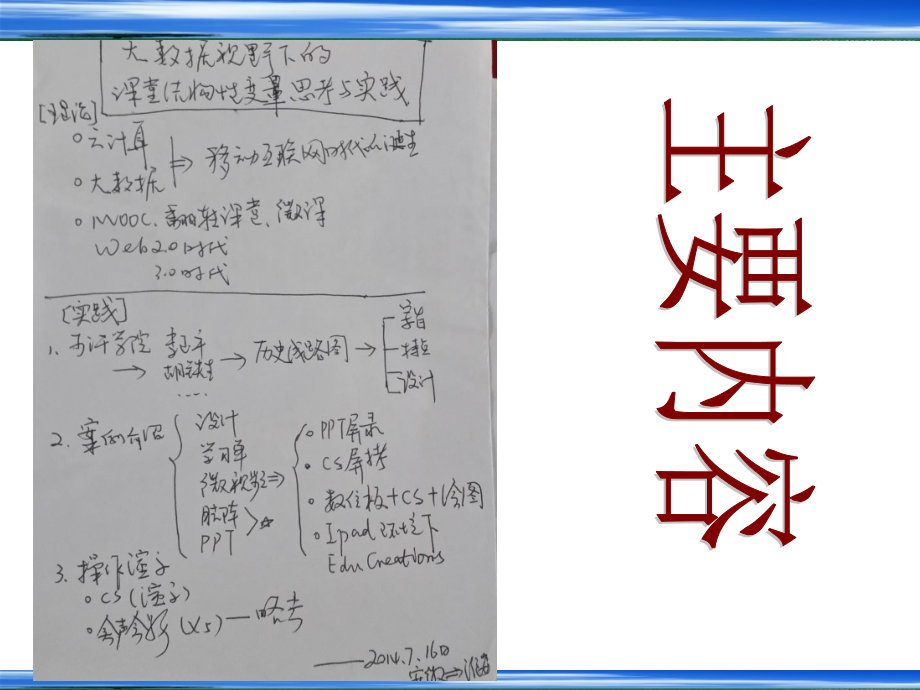 大数据视野下的
课堂结构性变量思考与实践
[理论]
云计算
大数据
⇒ 移动互联网时代的诞生
MOOC、翻转课堂、微课
Web2.0时代
3.0时代
[实践]
1、
学院
→
…
→ 历史线路图 →
设计
2. 案例介绍
设计
学习单
微视频 ⇒
PPT
PPT屏录
CS屏拷
数位板+CS+绘图
Ipad环境下
Edu Creations
3. 操作演示
CS(演示)
会声会影(X5)—略去
——2014.7.16日
主要内容